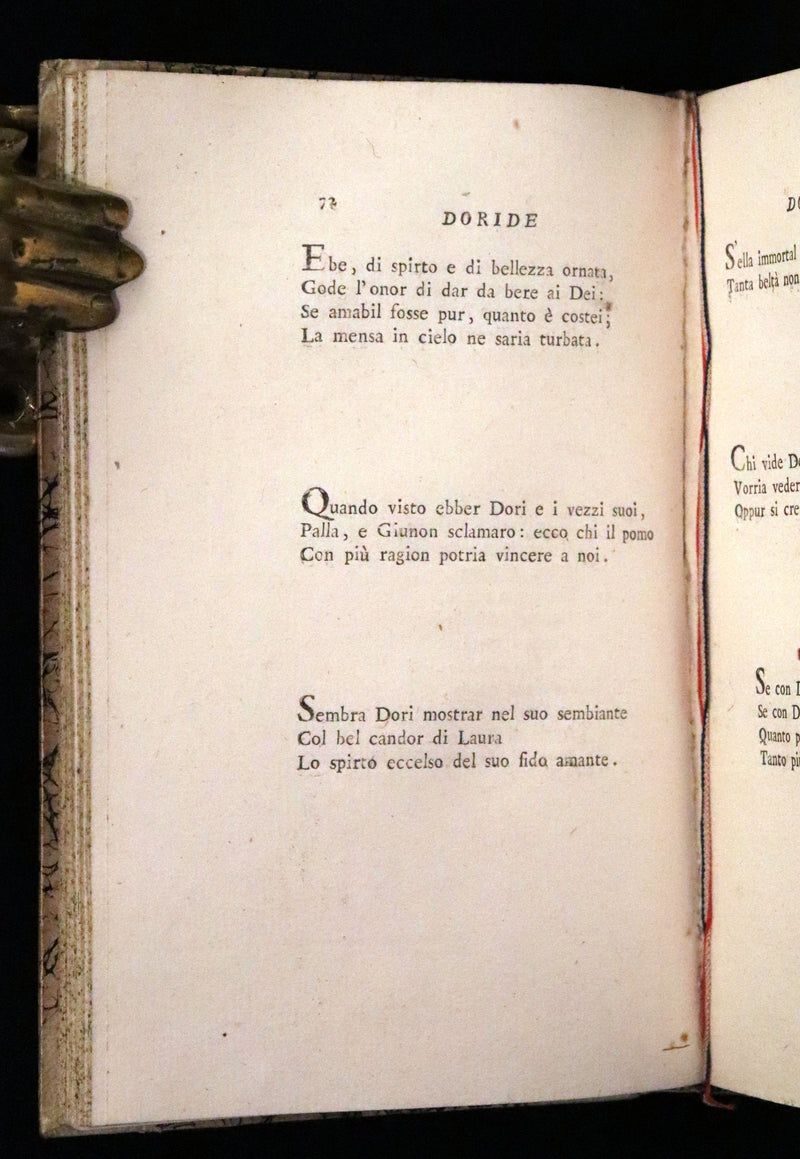 72
DORIDE
Ebe, di spirto e di bellezza ornata,
Gode l'onor di dar da bere ai Dei;
Se amabil fosse pur, quanto è costei;
La mensa in cielo ne saria turbata.
Quando visto ebber Dori e i vezzi suoi,
Palla, e Giunon sclamaro: ecco chi il pomo
Con più ragion potria vincere a noi.
Sembra Dori mostrar nel suo sembiante
Col bel candor di Laura
Lo spirto eccelso del suo fido amante.
S'ella immortal
Tanta beltà non
Chi vide
Vorria veder
Oppur si
Se con
Se con
Quanto
Tanto